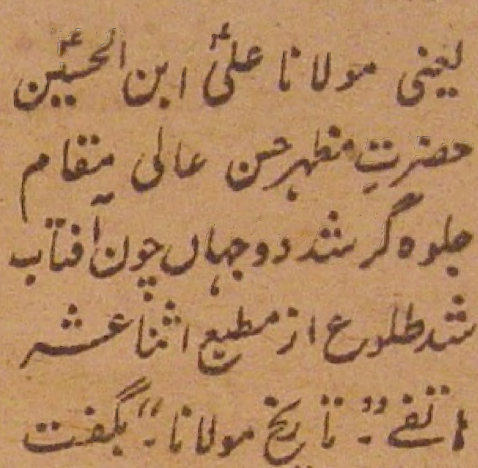 یعنی مولانا علیؑ ابن الحسینؑ
حضرتِ مظہر حسن عالی مقام
جلوہ گر شد دو جہاں چون آفتاب
شد طلوع از مطبع اثنا عشر
ہاتفے "تاریخ مولانا" بگفت